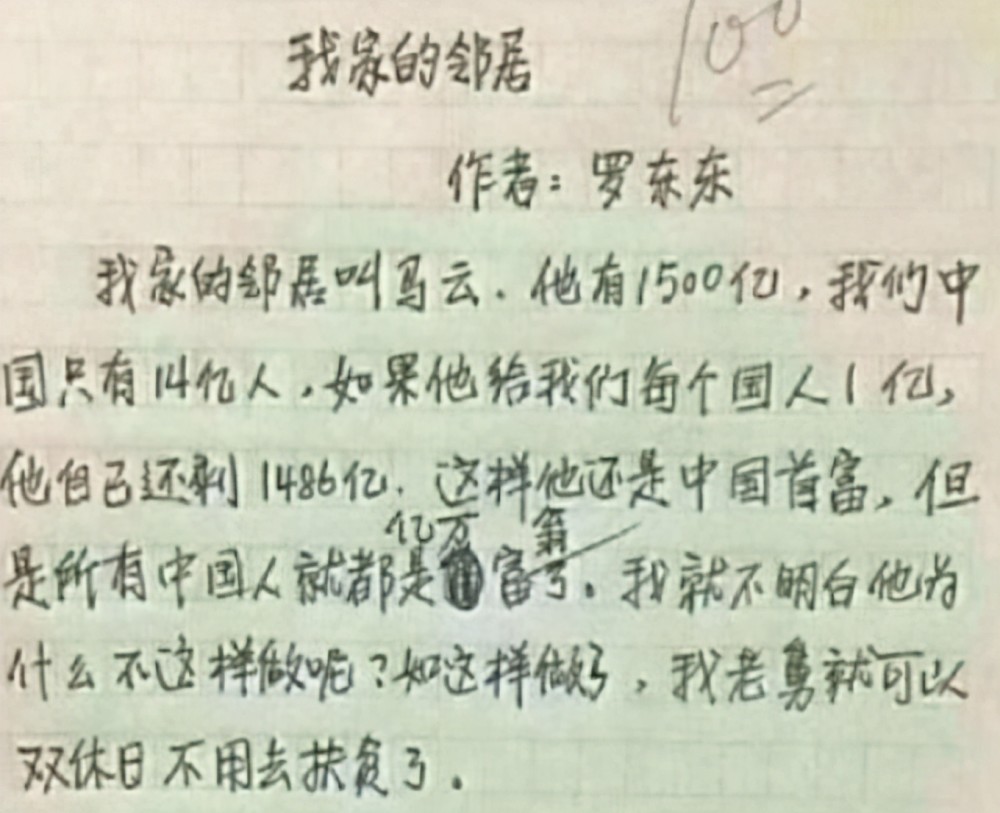 我家的邻居
100
作者：罗东东
我家的邻居叫马云．他有1500亿，我们中
国只有14亿人，如果他给我们每个国人1亿，
他自己还剩1486亿．这样他还是中国首富，但
亿万 翁
是所有中国人就都是富了。我就不明白他为
什么不这样做呢？如这样做好，我老舅就可以
双休日不用去扶贫了。